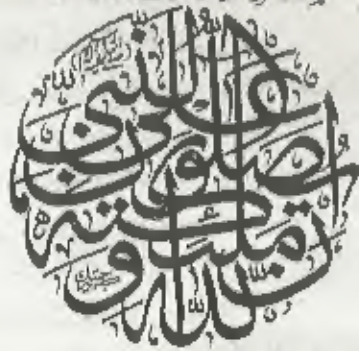 إن الله وملائكته يصلون على النبي